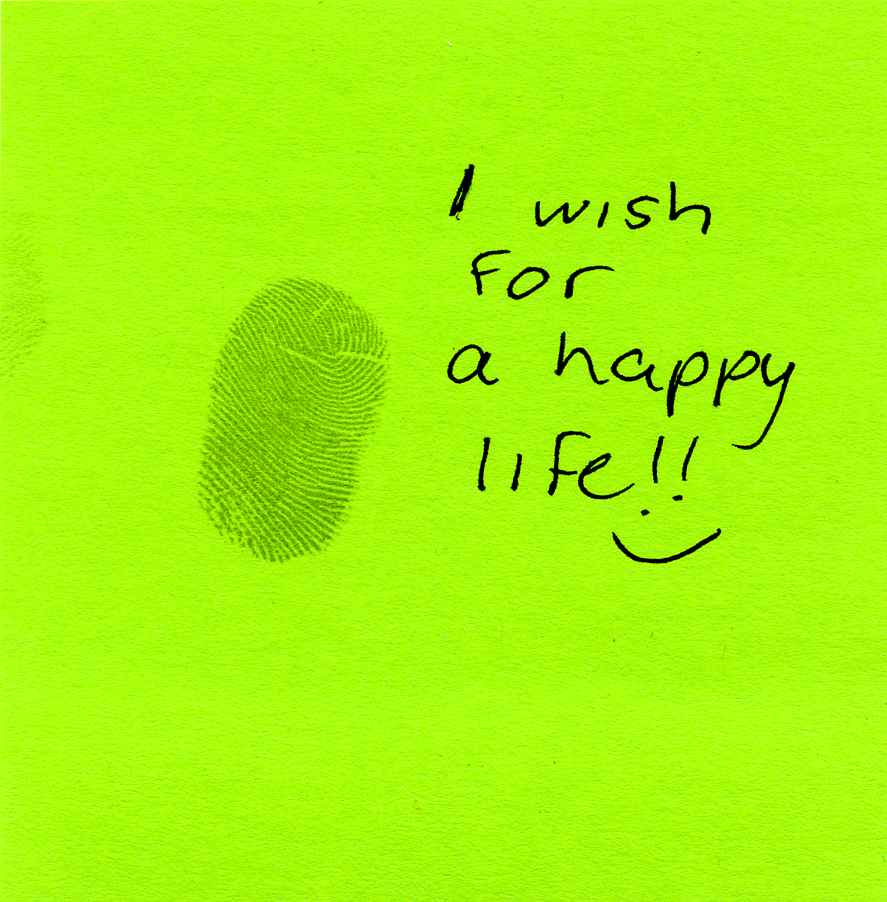 I wish
for
a happy
life!!